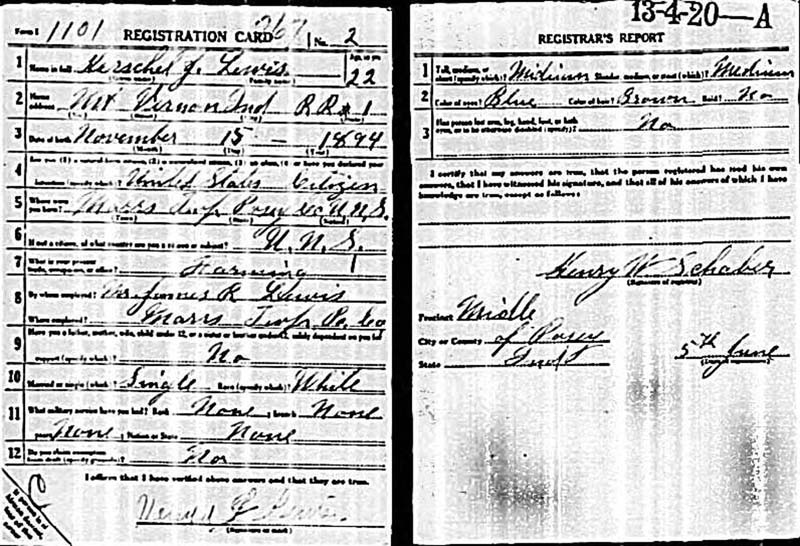 Form 1 1101 REGISTRATION CARD 267 No. 2
1 Name in full Herschel J. Lewis Age, in yrs 22
2 Home address Mt Vernon Ind R R # 1
3 Date of birth November 15 1894
4 Are you (1) a natural-born citizen, (2) a naturalized citizen, (3) an alien, (4) or have you declared your
intention (specify which)? United States Citizen
5 Where were you born? Marrs Twp Posey Co U.N.S.
6 If not a citizen, of what country are you a citizen or subject? U.N.S.
7 What is your present trade, occupation, or office? Farming 1
8 By whom employed? R Lewis
Where employed? Marrs Twp Po. Co
9 Have you a father, mother, wife, child under 12, or a sister or brother under 12, solely dependent on you for
support (specify which)? No
10 Married or single (which)? Single Race (specify which)? White
11 What military service have you had? Rank None ; branch None
years None ; Nation or State None
12 Do you claim exemption from draft (specify grounds)? No
I affirm that I have verified above answers and that they are true.
Lewis
(Signature or mark)
13-4-20—A
REGISTRAR'S REPORT
1 Tall, medium, or short (specify which)? Midium Slender, medium, or stout (which)? Medium
2 Color of eyes? Blue Color of hair? Brown Bald? No
3 Has person lost arm, leg, hand, foot, or both eyes, or is he otherwise disabled (specify)? No
I certify that my answers are true, that the person registered has read his own
answers, that I have witnessed his signature, and that all of his answers of which I have
knowledge are true, except as follows:
Henry W Schaber
(Signature of registrar)
Precinct Midle
City or County of Posey
State Ind 5th June